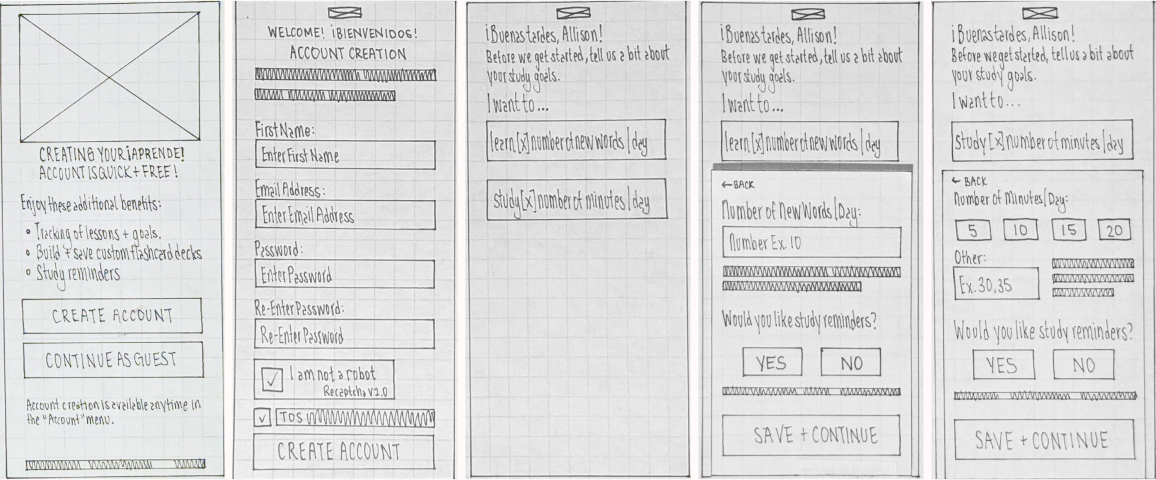 CREATING YOUR ¡APRENDE!
ACCOUNT IS QUICK + FREE!
Enjoy these additional benefits:
• Tracking of lessons + goals.
• Build + save custom flashcard decks
• Study reminders
CREATE ACCOUNT
CONTINUE AS GUEST
Account creation is available anytime in
the "Account" menu.
WELCOME! ¡BIENVENIDOS!
ACCOUNT CREATION
First Name:
Enter First Name
Email Address:
Enter Email Address
Password:
Enter Password
Re-Enter Password:
Re-Enter Password
I am not a robot
Recaptcha v2.0
TOS
CREATE ACCOUNT
¡Buenas tardes, Allison!
Before we get started, tell us a bit about
your study goals.
I want to...
learn [x] number of new words / day
study [x] number of minutes / day
¡Buenas tardes, Allison!
Before we get started, tell us a bit about
your study goals.
I want to...
learn [x] number of new words / day
← BACK
Number of New Words / Day:
Number Ex. 10
Would you like study reminders?
YES NO
SAVE + CONTINUE
¡Buenas tardes, Allison!
Before we get started, tell us a bit about
your study goals.
I want to...
study [x] number of minutes / day
← BACK
Number of Minutes / Day:
5 10 15 20
Other:
Ex. 30, 35
Would you like study reminders?
YES NO
SAVE + CONTINUE